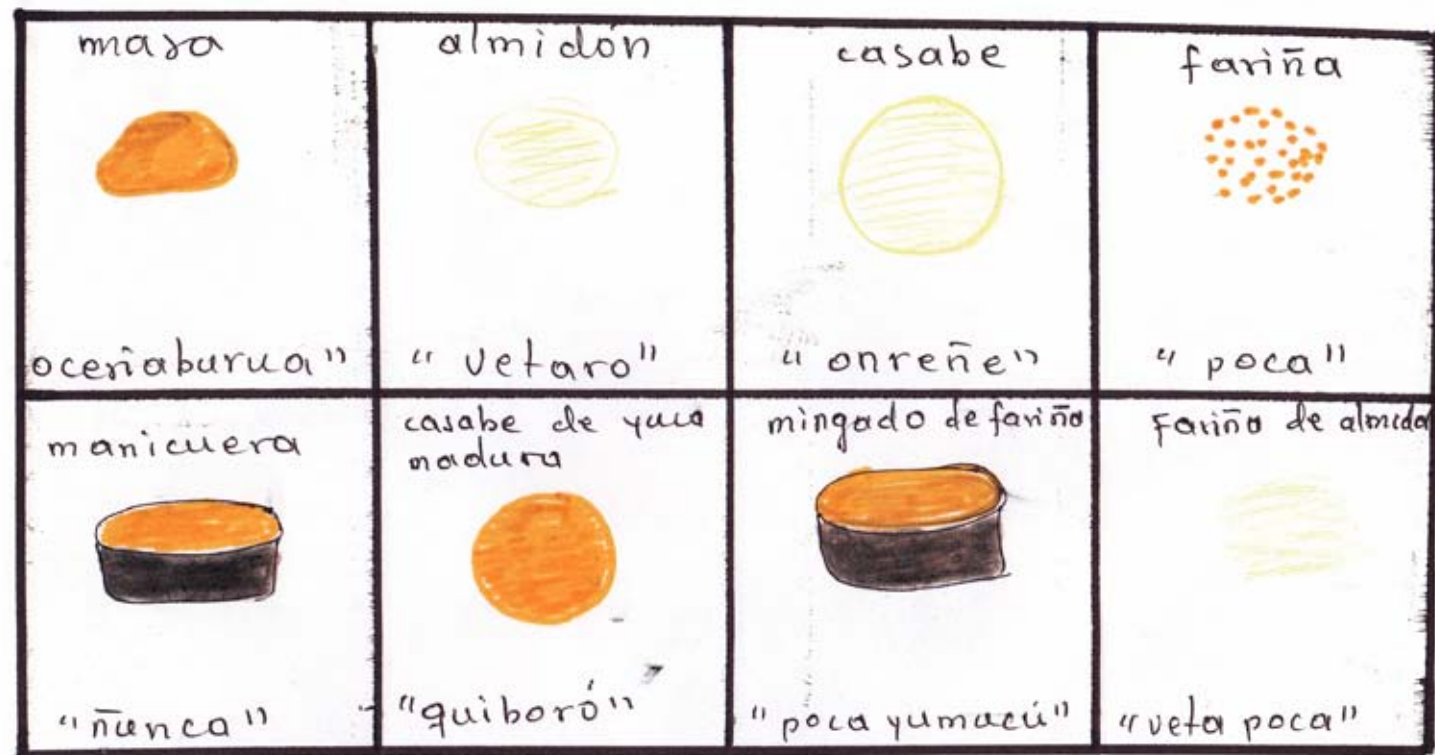 masa
almidón
casabe
fariña
oceñaburua"
"vetaro"
"onreñe"
"poca"
manicuera
casabe de yuca
madura
mingado de fariña
Fariña de almido
"ñunca"
"quiboró"
"poca yumucú"
"veta poca"